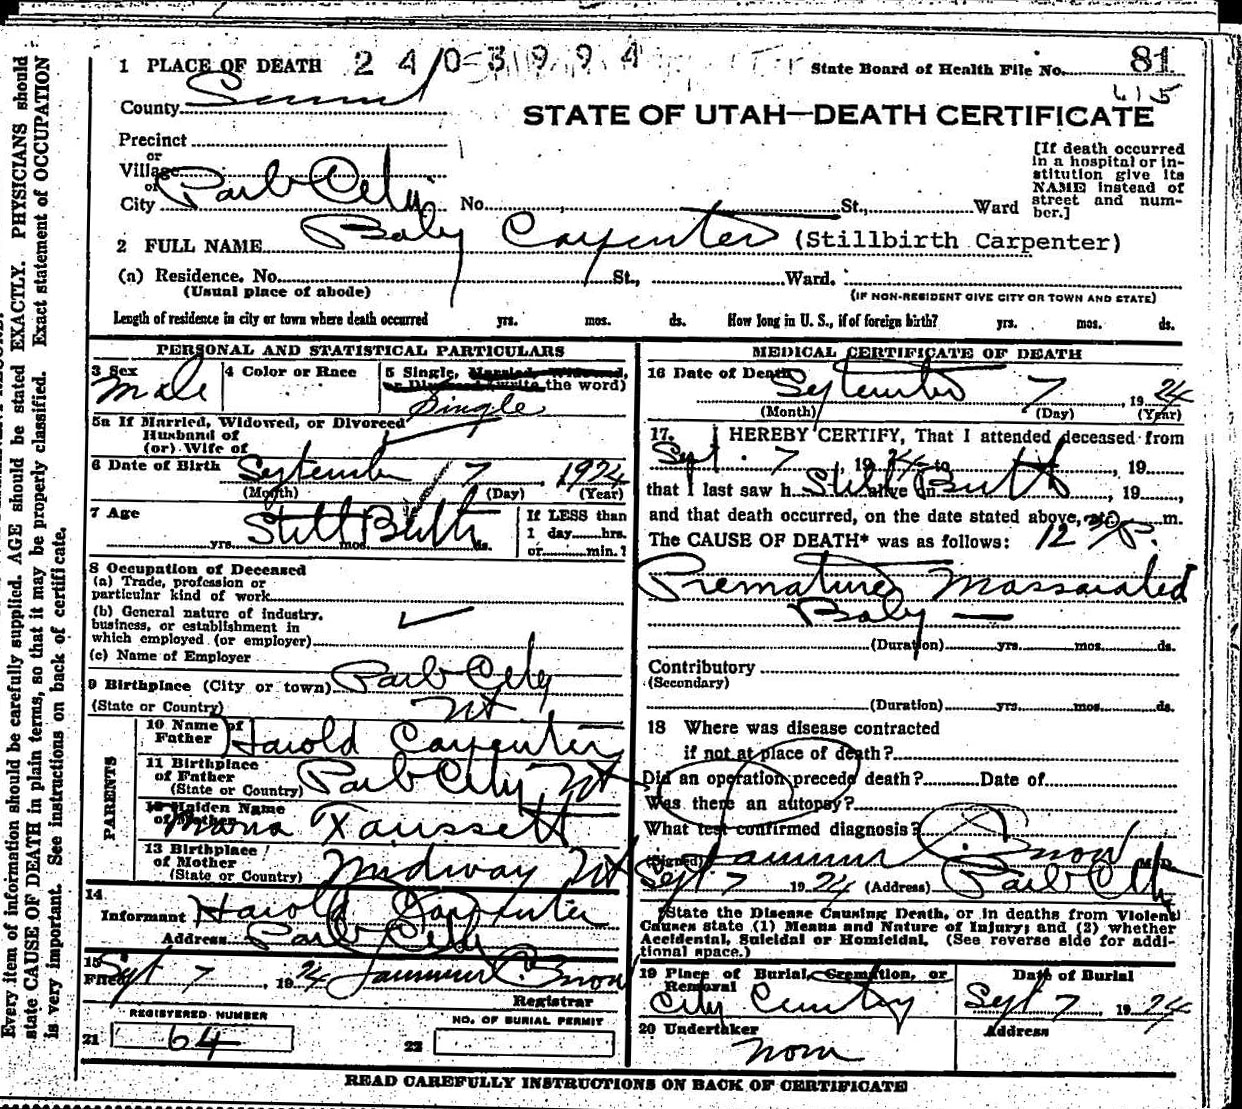 1 PLACE OF DEATH 2 4 0 3 9 9 4
State Board of Health File No. 81
County Summit
415
STATE OF UTAH—DEATH CERTIFICATE
Precinct
or
Village
or
City Park City No. St., Ward
[If death occurred
in a hospital or in-
stitution give its
NAME instead of
street and num-
ber.]
2 FULL NAME Baby Carpenter (Stillbirth Carpenter)
(a) Residence. No. St., Ward.
(Usual place of abode)
(IF NON-RESIDENT GIVE CITY OR TOWN AND STATE)
Length of residence in city or town where death occurred yrs. mos. ds. How long in U. S., if of foreign birth? yrs. mos. ds.
PERSONAL AND STATISTICAL PARTICULARS
3 Sex
Male
4 Color or Race
5 Single, Married, Widowed,
or Divorced (write the word)
Single
5a If Married, Widowed, or Divorced
Husband of
(or) Wife of
6 Date of Birth September 7, 1924
(Month) (Day) (Year)
7 Age Still Birth
yrs. mos. ds.
If LESS than
1 day hrs.
or min.?
8 Occupation of Deceased
(a) Trade, profession or
particular kind of work
(b) General nature of industry,
business, or establishment in
which employed (or employer)
(c) Name of Employer
9 Birthplace (City or town) Park City
(State or Country) Ut.
PARENTS
10 Name of
Father Harold Carpenter
11 Birthplace
of Father
(State or Country) Park City Ut
12 Maiden Name
of Mother
Maria Faussett
13 Birthplace
of Mother
(State or Country) Midway Ut
14
Informant Harold Carpenter
Address Park City
15
Filed Sept 7, 1924 Snow
Registrar
REGISTERED NUMBER
21 64
NO. OF BURIAL PERMIT
22
MEDICAL CERTIFICATE OF DEATH
16 Date of Death September 7 1924
(Month) (Day) (Year)
17. I HEREBY CERTIFY, That I attended deceased from
Sept. 7, 1924 to , 19
that I last saw h alive on Still Birth, 19,
and that death occurred, on the date stated above, at m.
The CAUSE OF DEATH* was as follows: 12 30 P.
Premature Massarated
Baby —
(Duration) yrs. mos. ds.
Contributory
(Secondary)
(Duration) yrs. mos. ds.
18 Where was disease contracted
if not at place of death?
Did an operation precede death? Date of
Was there an autopsy?
What test confirmed diagnosis?
(Signed) Snow M.D.
Sept 7 1924 (Address) Park City
*State the Disease Causing Death, or in deaths from Violent
Causes state (1) Means and Nature of Injury; and (2) whether
Accidental, Suicidal or Homicidal. (See reverse side for addi-
tional space.)
19 Place of Burial, Cremation, or
Removal
City Cemetery
Date of Burial
Sept 7, 1924
20 Undertaker
None
Address
READ CAREFULLY INSTRUCTIONS ON BACK OF CERTIFICATE
Every item of information should be carefully supplied. AGE should be stated EXACTLY. PHYSICIANS should
state CAUSE OF DEATH in plain terms, so that it may be properly classified. Exact statement of OCCUPATION
is very important. See instructions on back of certificate.